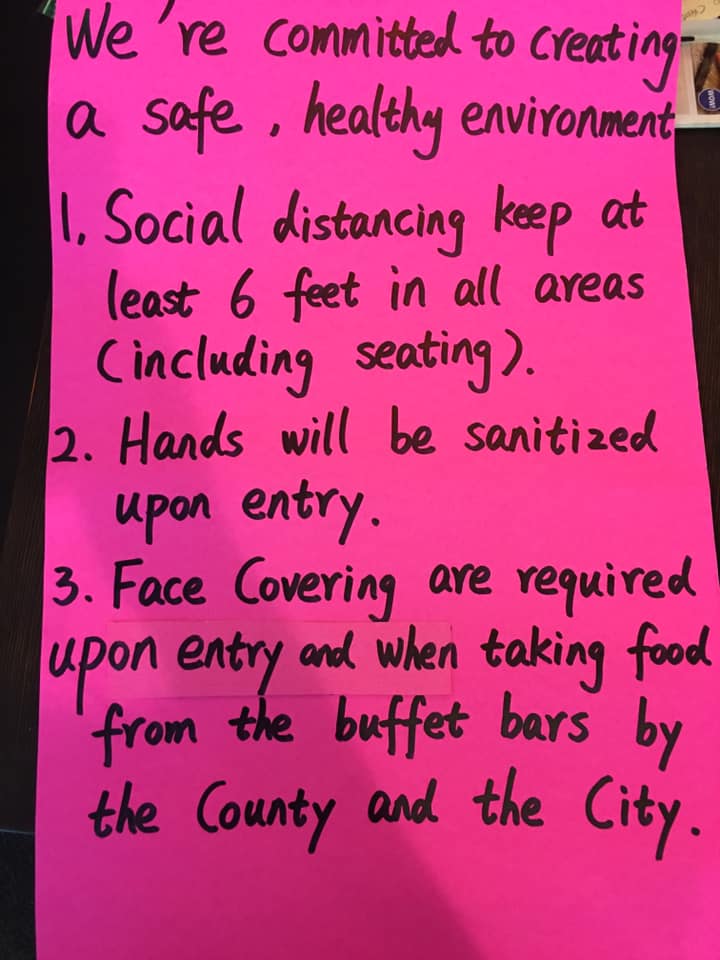 We're committed to creating
a safe, healthy environment
1. Social distancing keep at
least 6 feet in all areas
(including seating).
2. Hands will be sanitized
upon entry.
3. Face Covering are required
upon entry and when taking food
from the buffet bars by
the County and the City.